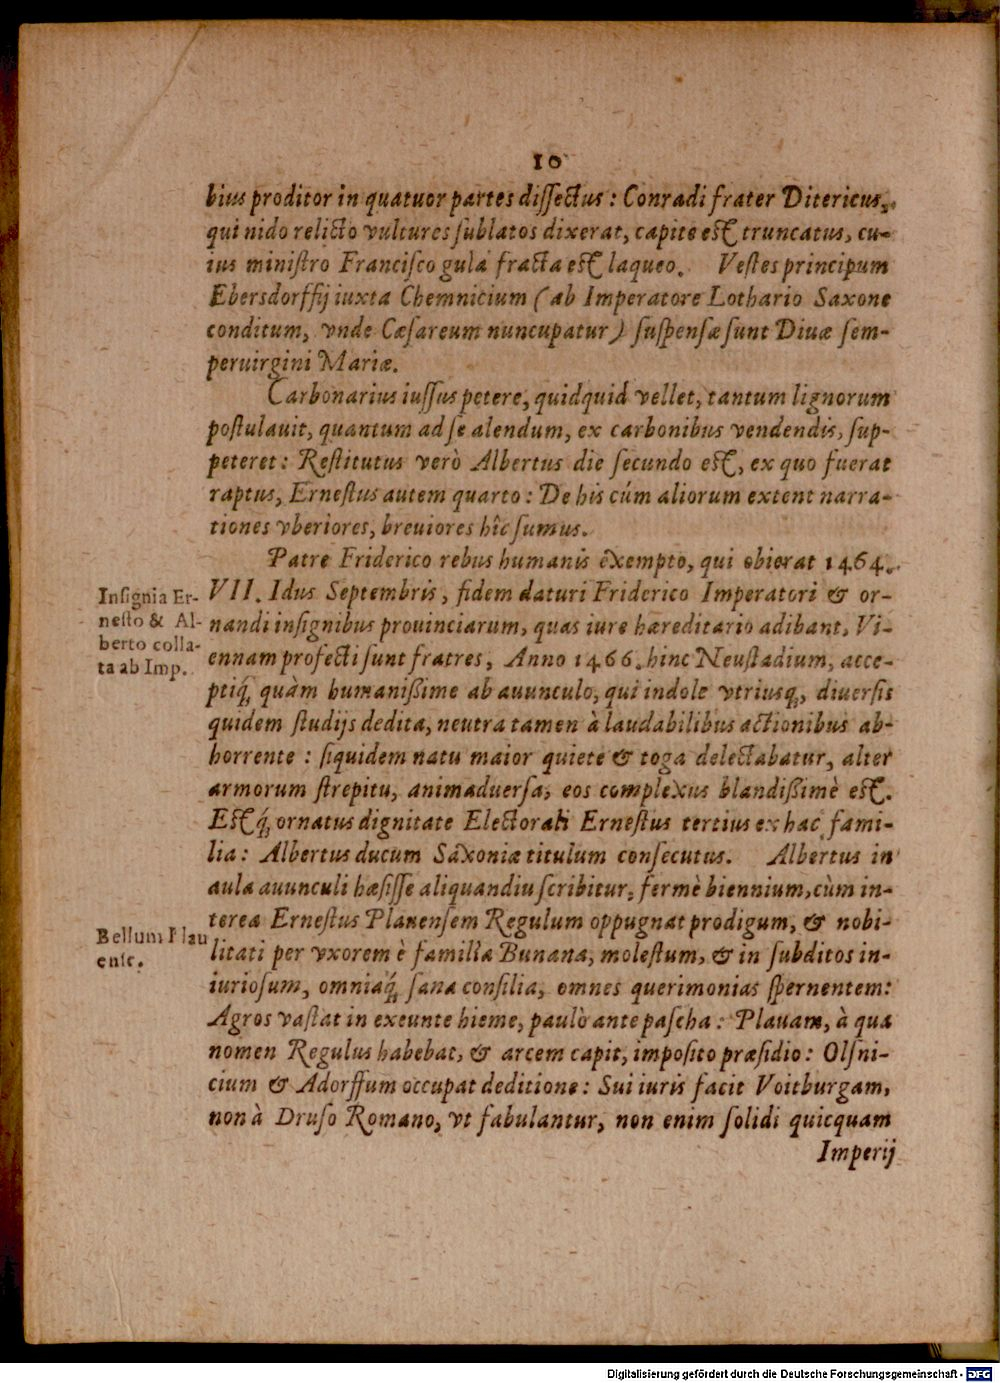 10
bius proditor in quatuor partes dissectus : Conradi frater Ditericus,
qui nido relicto vultures sublatos dixerat, capite est truncatus, cu-
ius ministro Francisco gula fracta est laqueo. Vestes principum
Ebersdorffij iuxta Chemnicium ( ab Imperatore Lothario Saxone
conditum, vnde Cæsareum nuncupatur ) suspensæ sunt Diuæ sem-
peruirgini Mariæ.
Carbonarius iussus petere, quidquid vellet, tantum lignorum
postulauit, quantum ad se alendum, ex carbonibus vendendis, sup-
peteret : Restitutus verò Albertus die secundo est, ex quo fuerat
raptus, Ernestus autem quarto : De his cúm aliorum extent narra-
tiones vberiores, breuiores hîc sumus.
Patre Friderico rebus humanis exempto, qui obierat 1464.
VII. Idus Septembris, fidem daturi Friderico Imperatori & or-
nandi insignibus prouinciarum, quas iure hæreditario adibant, Vi-
ennam profecti sunt fratres, Anno 1466. hinc Neustadium, acce-
ptiq́; quàm humanißime ab auunculo, qui indole vtriusq;, diuersis
quidem studijs dedita, neutra tamen à laudabilibus actionibus ab-
horrente : siquidem natu maior quiete & toga delectabatur, alter
armorum strepitu, animaduersa, eos complexus blandißimè est.
Estq́; ornatus dignitate Electorali Ernestus tertius ex hac fami-
lia : Albertus ducum Saxoniæ titulum consecutus. Albertus in
aula auunculi hæsisse aliquandiu scribitur, fermè biennium, cùm in-
terea Ernestus Plauensem Regulum oppugnat prodigum, & nobi-
litati per vxorem è familia Bunana, molestum, & in subditos in-
iuriosum, omniaq́; sana consilia, omnes querimonias spernentem :
Agros vastat in exeunte hieme, paulò ante pascha : Plauam, à qua
nomen Regulus habebat, & arcem capit, imposito præsidio : Olsni-
cium & Adorffum occupat deditione : Sui iuris facit Voitburgam,
non à Druso Romano, vt fabulantur, non enim solidi quicquam
Imperij
Insignia Er-
nesto & Al-
berto colla-
ta ab Imp.
Bellum Plau
ense.
Digitalisierung gefördert durch die Deutsche Forschungsgemeinschaft - DFG